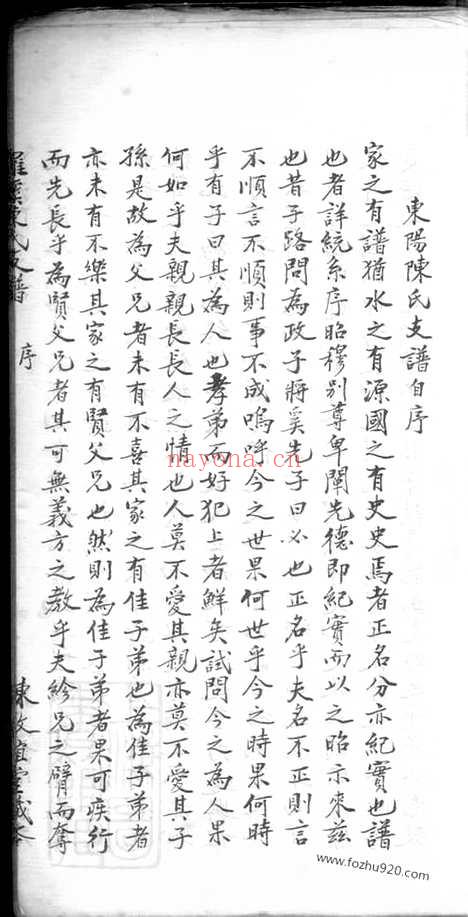 東陽陳氏支譜自序
家之有譜猶水之有源國之有史史焉者正名分亦紀實也譜
也者詳統系序昭穆別尊卑闡先德即紀實而以之昭示來茲
也昔子路問為政子將奚先子曰必也正名乎夫名不正則言
不順言不順則事不成嗚呼今之世果何世乎今之時果何時
乎有子曰其為人也孝弟而好犯上者鮮矣試問今之為人果
何如乎夫親親長長人之情也人莫不愛其親亦莫不愛其子
孫是故為父兄者未有不喜其家之有佳子弟也為佳子弟者
亦未有不樂其家之有賢父兄也然則為佳子弟者果可疾行
而先長乎為賢父兄者其可無義方之教乎夫紾兄之臂而奪
陳氏支譜
序
東
堂
nayona.cn
www.fozhu920.com